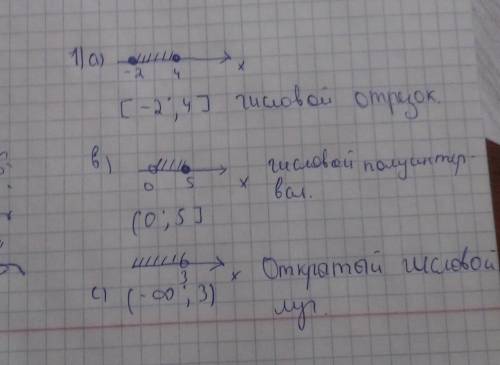 1) а)
-2 4 x
[-2; 4] числовой отрезок.
в)
0 5 x числовой полуинтер-
вал.
(0; 5]
3 x Открытый числовой
с) (-∞; 3) луч.